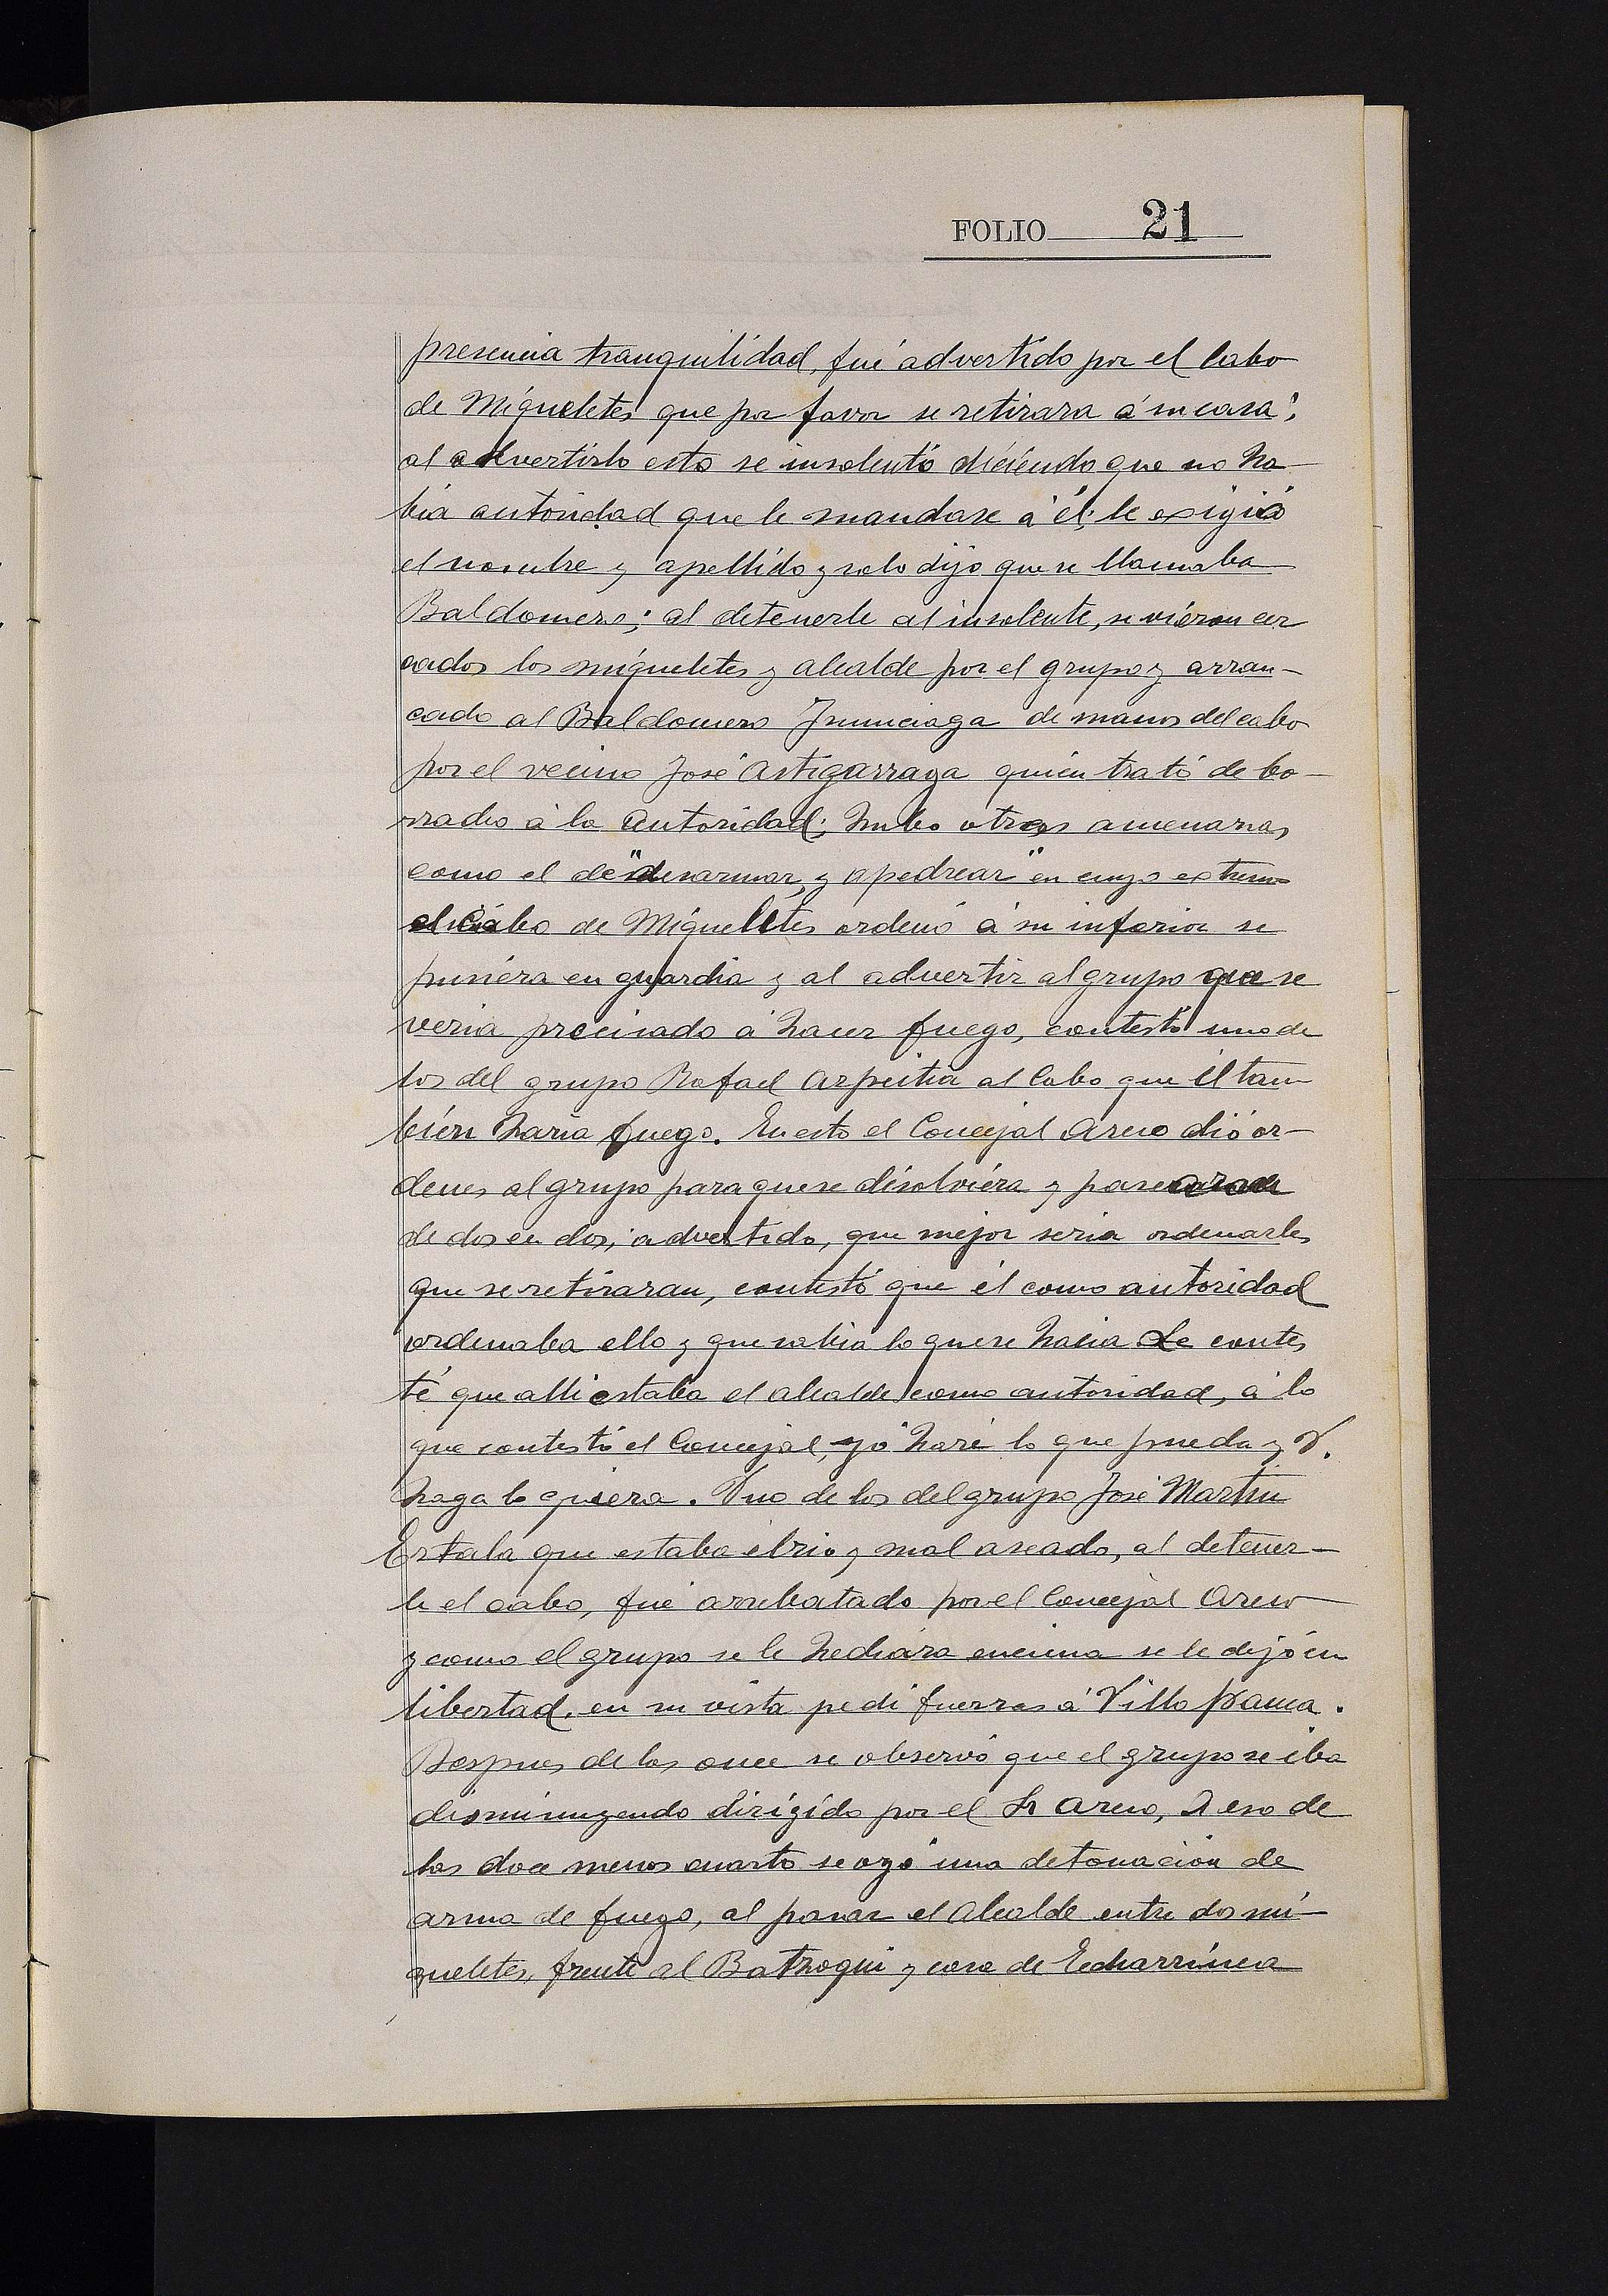 FOLIO 21
presencia tranquilidad, fué advertido por el Cabo
de Miqueletes que por favor se retirara á su casa;
al advertirlo esto se insolentó diciendo que no ha-
bia autoridad que le mandase á él; le exigió
el nombre y apellido y solo dijo que se llamaba
Baldomero; al detenerle al insolente, se vieron cer
cados los miqueletes y alcalde por el grupo y arran-
cado al Baldomero Ynunciaga de manos del cabo
por el vecino José Astigarraga quien trató de bo-
rracho á la Autoridad; hubo otras amenazas
como el de "desarmar, y apedrear" en cuyo extremo
el Cabo de Miqueletes ordenó á su inferior se
pusiera en guardia y al advertir al grupo que se
veria precisado á hacer fuego, contestó uno de
los del grupo Rafael Azpeitia al Cabo que él tam
bién haria fuego. En esto el Concejal Areso dió or-
denes al grupo para que se disolviera y pasearan
de dos en dos; advertido, que mejor seria ordenarles
que se retiraran, contestó que él como autoridad
ordenaba ello y que sabia lo que se hacia Le contes
té que alli estaba el alcalde como autoridad, á lo
que contestó el Concejal, yo haré lo que pueda y V.
haga lo quiera. Uno de los del grupo José Martin
Estala que estaba ebrio y mal aseado, al detener-
le el cabo, fue arrebatado por el Concejal Areso
y como el grupo se le hechára encima se le dejó en
libertad, en su vista pedi fuerzas á Villafranca.
Despues de las once se observó que el grupo se iba
disminuyendo dirigido por el Sr Areso, A eso de
las doce menos cuarto se oyó una detonación de
arma de fuego, al pasar el Alcalde entre dos mi-
queletes, frente al Batzoqui y casa de Echarrinea